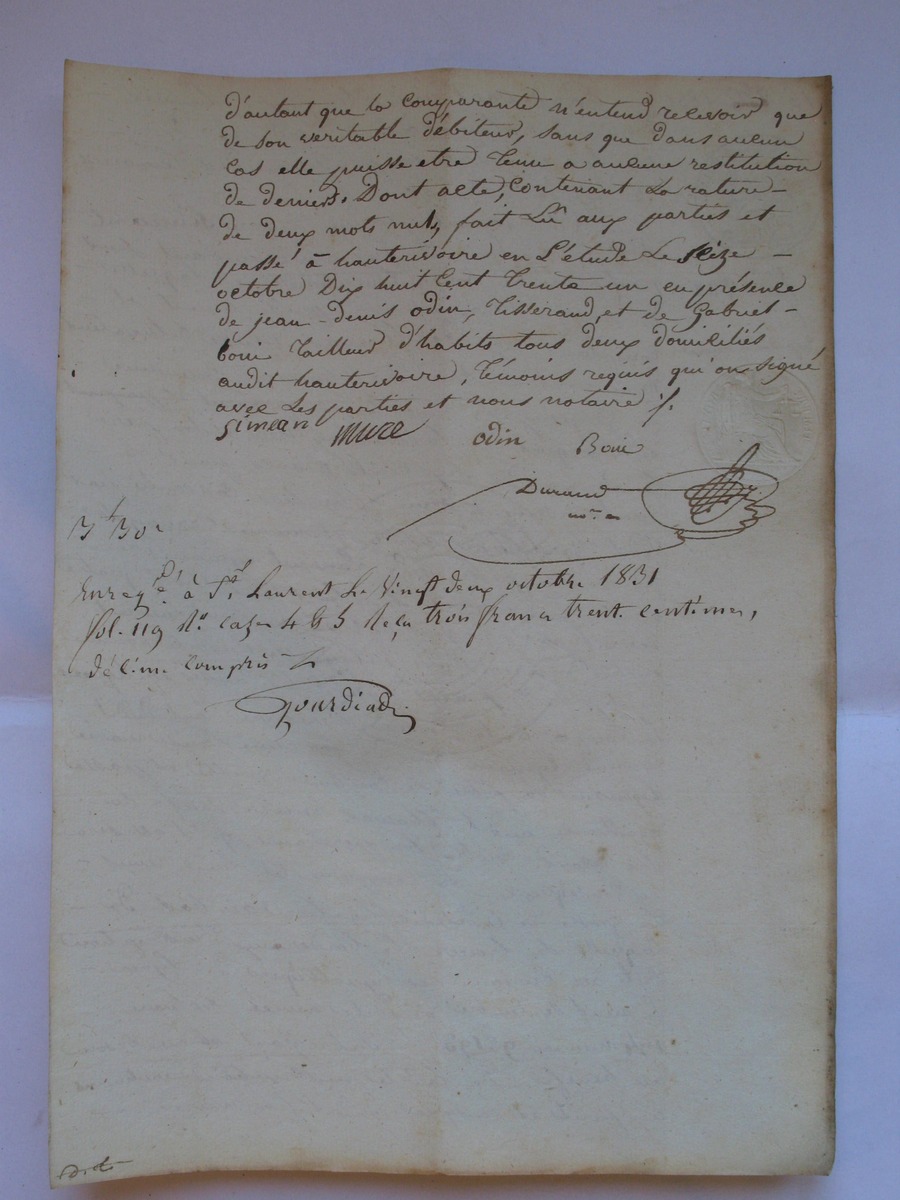 d'autant que la comparante n'entend recevoir que
de son veritable débiteur, sans que dans aucun
cas elle puisse etre tenu a aucune restitution
de deniers. Dont acte, contenant la rature
de deux mots nuls, fait Lû aux parties et
passé à hauterivoire en L'etude Le seize
octobre Dix huit cent trente un en présence
de jean-denis odin, tisserand, et de Gabriel
boui tailleur d'habits tous deux domiciliés
audit hauterivoire, témoins requis qui on signé
avec Les parties et nous notaire
simean mure odin Boui
Durand
nore
3f 30c
Enregé à St. Laurent Le Vingt deux octobre 1831
fol. 119 Ro cazes 4 & 5 Reçu trois francs trente centimes,
décime compris